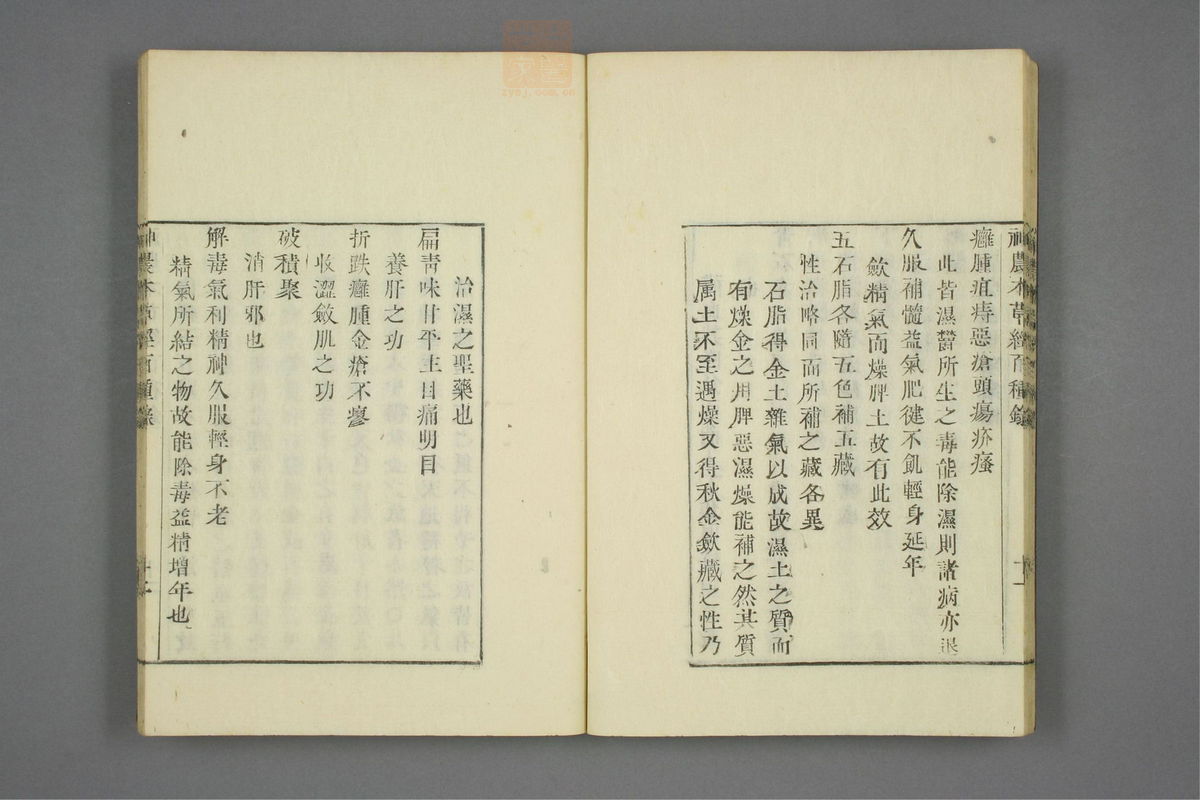 神農本草經百種錄 十一
癰腫疽痔惡瘡頭瘍疥瘙
此皆濕鬱所生之毒能除濕則諸病亦退
久服補髓益氣肥健不飢輕身延年
斂精氣而燥脾土故有此效
五石脂各隨五色補五藏
性治略同而所補之藏各異
石脂得金土雜氣以成故濕土之質而
有燥金之用脾惡濕燥能補之然其質
属土不至過燥又得秋金斂藏之性乃
治濕之聖藥也
扁青味甘平主目痛明目
養肝之功
折跌癰腫金瘡不瘳
收澀斂肌之功
破積聚
消肝邪也
解毒氣利精神久服輕身不老
精氣所結之物故能除毒益精增年也
神農本草經百種錄
zyqj.com.cn